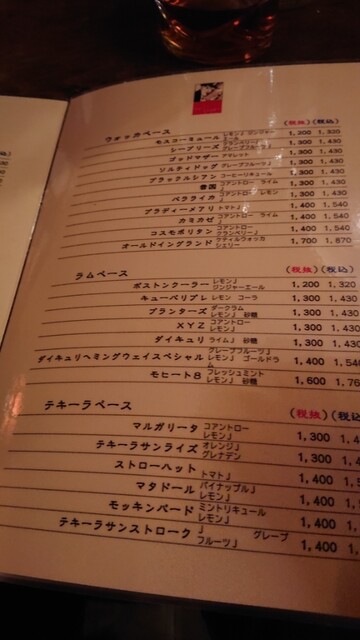 (税抜)(税込)
ウォッカベース
モスコーミュール レモンJ ジンジャーエール 1,200 1,320
シーブリーズ クランベリーJ グレープフルーツJ 1,300 1,430
ゴッドマザー アマレット 1,300 1,430
ソルティドッグ グレープフルーツJ 1,300 1,430
ブラックルシアン コーヒーリキュール 1,300 1,430
雪国 コアントロー ライム 1,300 1,430
バラライカ コアントロー レモンJ 1,300 1,430
ブラディーメアリ トマトJ 1,400 1,540
カミカゼ コアントロー ライムJ 1,400 1,540
コスモポリタン コアントロー クランベリーJ 1,400 1,540
オールドイングランド ウォッカ シェリー 1,700 1,870
ラムベース (税抜)(税込)
ボストンクーラー レモンJ ジンジャーエール 1,200 1,320
キューバリブレ レモン コーラ 1,300 1,430
プランターズ ダークラム レモンJ 砂糖 1,300 1,430
XYZ コアントロー レモンJ 1,300 1,430
ダイキュリ ライムJ 砂糖 1,300 1,430
ダイキュリヘミングウェイスペシャル グレープフルーツJ レモンJ ゴールドラム 1,400 1,540
モヒート8 フレッシュミント レモンJ 砂糖 1,600 1,76
テキーラベース (税抜)(税
マルガリータ コアントロー レモンJ 1,300 1,4
テキーラサンライズ オレンジJ グレナデン 1,300 1,4
ストローハット トマトJ 1,400 1,5
マタドール パイナップルJ レモンJ 1,400 1,
モッキンバード ミントリキュール レモンJ 1,400 1,
テキーラサンストローク J グレープフルーツJ 1,400 1,